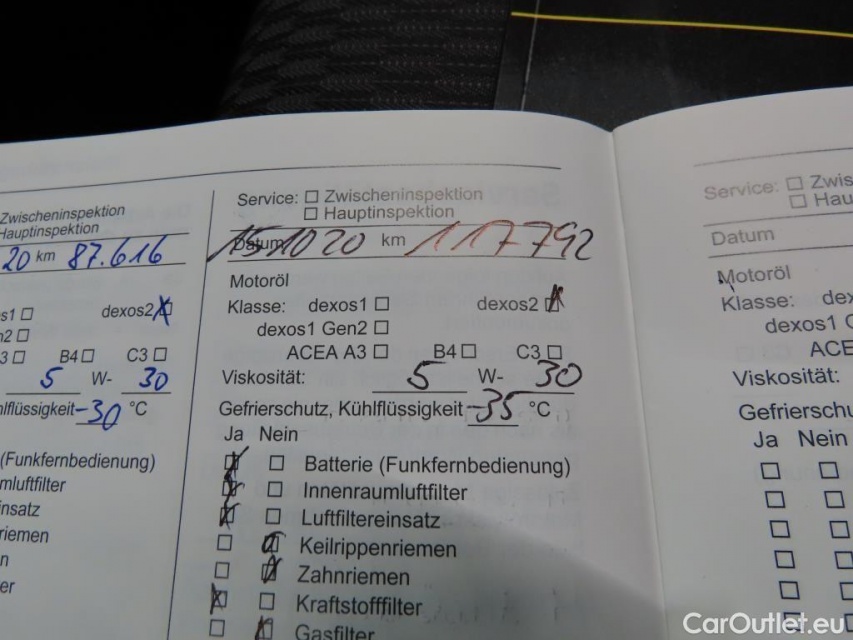 Zwischeninspektion
Hauptinspektion
20 km 87.616
s1 ☐ dexos2 ☒
n2 ☐
3 ☐ B4 ☐ C3 ☐
5 W- 30
hlflüssigkeit -30 °C
(Funkfernbedienung)
mluftfilter
nsatz
riemen
n
er
Service: ☐ Zwischeninspektion
☐ Hauptinspektion
Datum 151020 km 117792
Motoröl
Klasse: dexos1 ☐ dexos2 ☒
dexos1 Gen2 ☐
ACEA A3 ☐ B4 ☐ C3 ☐
Viskosität: 5 W- 30
Gefrierschutz, Kühlflüssigkeit -35 °C
Ja Nein
☒ ☐ Batterie (Funkfernbedienung)
☒ ☐ Innenraumluftfilter
☒ ☐ Luftfiltereinsatz
☐ ☒ Keilrippenriemen
☐ ☒ Zahnriemen
☒ ☐ Kraftstofffilter
☐ ☒ Gasfilter
Service: ☐ Zwis
☐ Hau
Datum
Motoröl
Klasse: dex
dexos1 G
ACE
Viskosität:
Gefrierschu
Ja Nein
CarOutlet.eu